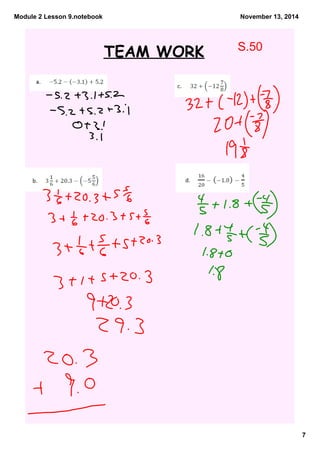 Module 2 Lesson 9.notebook
November 13, 2014
TEAM WORK
S.50
a. −5.2 − (−3.1) + 5.2
-5.2 +3.1+5.2
-5.2 +5.2 +3.1
0+3.1
3.1
c. 32 + (−12 7/8)
32+(-12)+(-7/8)
20+(-7/8)
19 1/8
b. 3 1/6 + 20.3 − (−5 5/6)
3 1/6 +20.3 +5 5/6
3+ 1/6 +20.3+5+ 5/6
3+ 1/6 + 5/6 +5+20.3
3+1+5+20.3
9+20.3
29.3
20.3
+ 9.0
d. 16/20 − (−1.8) − 4/5
4/5 +1.8+(-4/5)
1.8+ 4/5 +(-4/5)
1.8+0
1.8
7